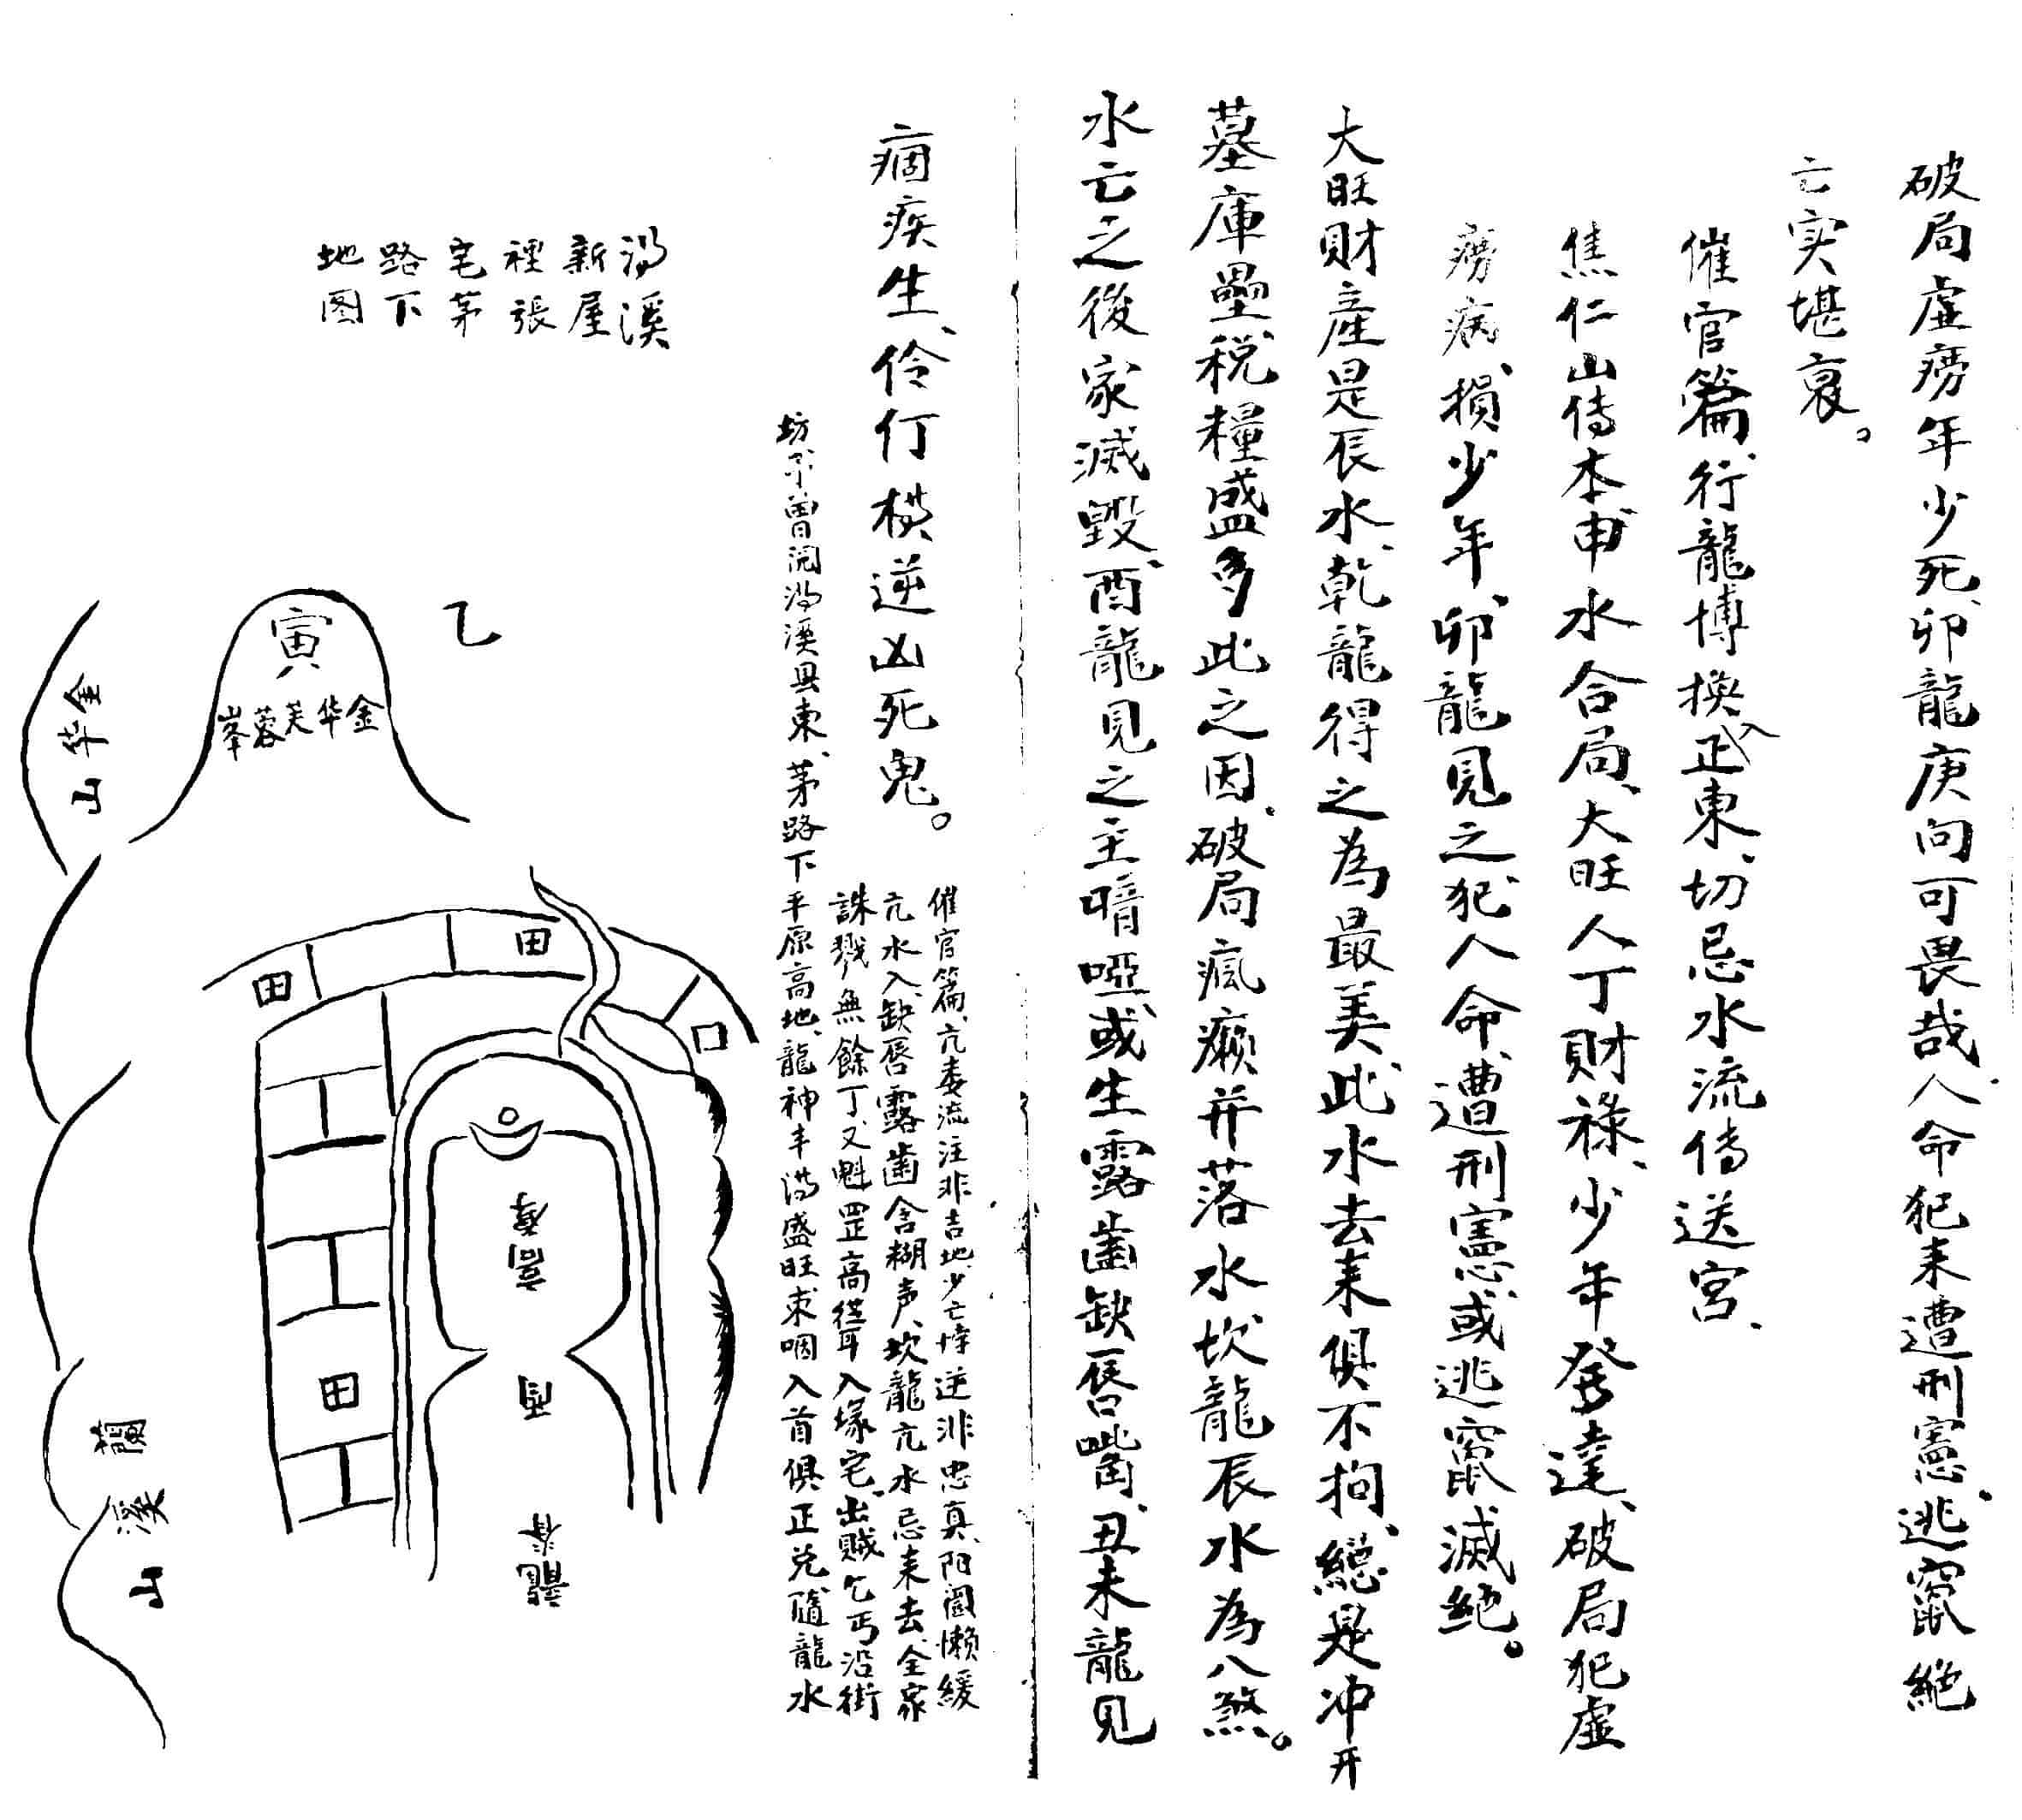 破局虚痨年少死、卯龍庚向可畏哉、人命犯来遭刑憲、逃竄絕
亡实堪哀。
催官篇、行龍博換入正東、切忌水流传送宮、
焦仁山传本、申水合局、大旺人丁財祿、少年发達、破局犯虚
痨病、損少年、卯龍見之、犯人命、遭刑憲、或逃竄滅絕。
大旺財產是辰水、乾龍得之為最美、此水去来俱不拘、總是冲开
墓庫壘、税糧盛多此之因、破局瘋癩并落水、坎龍辰水為八煞。
水亡之後家滅毀、酉龍見之主暗啞、或生露齒缺唇嘴、丑未龍見
痼疾生、伶仃横逆凶死鬼。
催官篇、亢委流注非吉地、少亡悖逆非忠真、阳阎懒緩
亢水入、缺唇露齒含糊声、坎龍亢水忌来去、全家
誅戮無餘丁、又魁罡高聳耳入塚宅、出贼乞丐沿街
坊、予曽阅汤溪县東、茅路下平原高地、龍神丰满盛旺、求咽入首俱正兑隨龍水
汤溪
新屋
裡張
宅茅
路下
地图
乙
寅
金华芙蓉峯
金华山
田
田
田
口
酉
蘭溪山